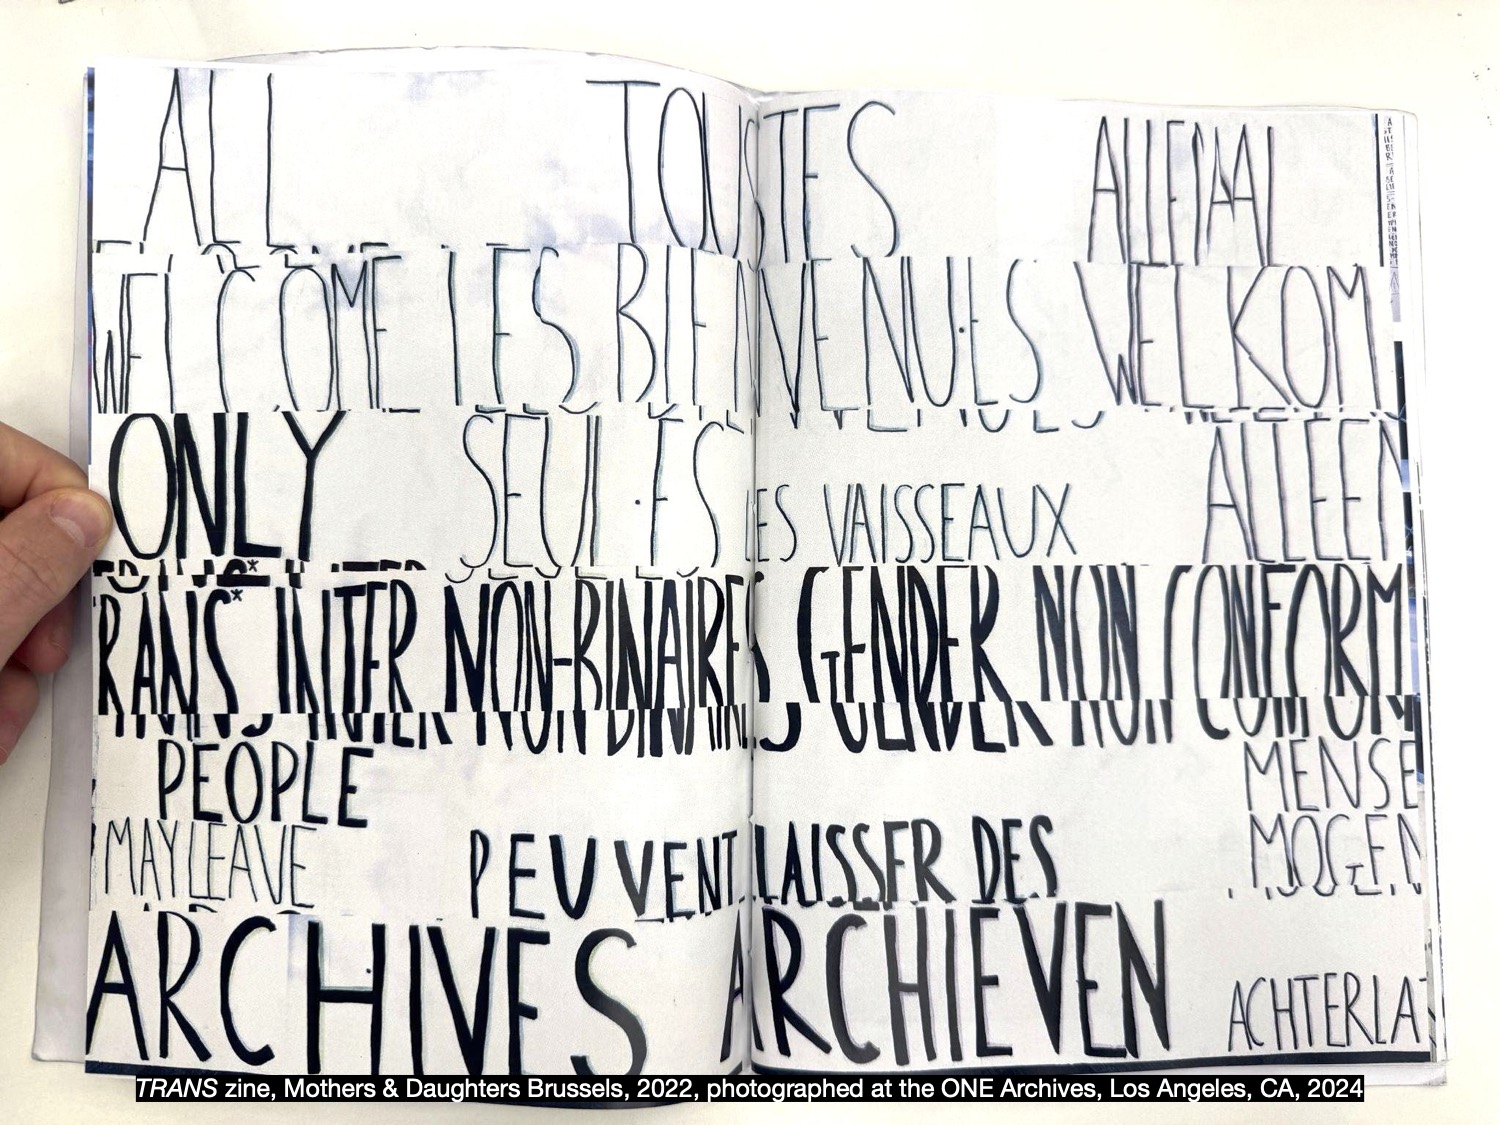 ALL TOUSTES ALLEMAAL
WELCOME LES BIENVENU·ES WELKOM
ONLY SEUL·ES LES VAISSEAUX ALLEEN
RANS* INTER NON-BINAIRES GENDER NON CONFORM
PEOPLE MENSE
MAY LEAVE PEUVENT LAISSER DES MOGEN
ARCHIVES ARCHIEVEN ACHTERLAT
TRANS zine, Mothers & Daughters Brussels, 2022, photographed at the ONE Archives, Los Angeles, CA, 2024